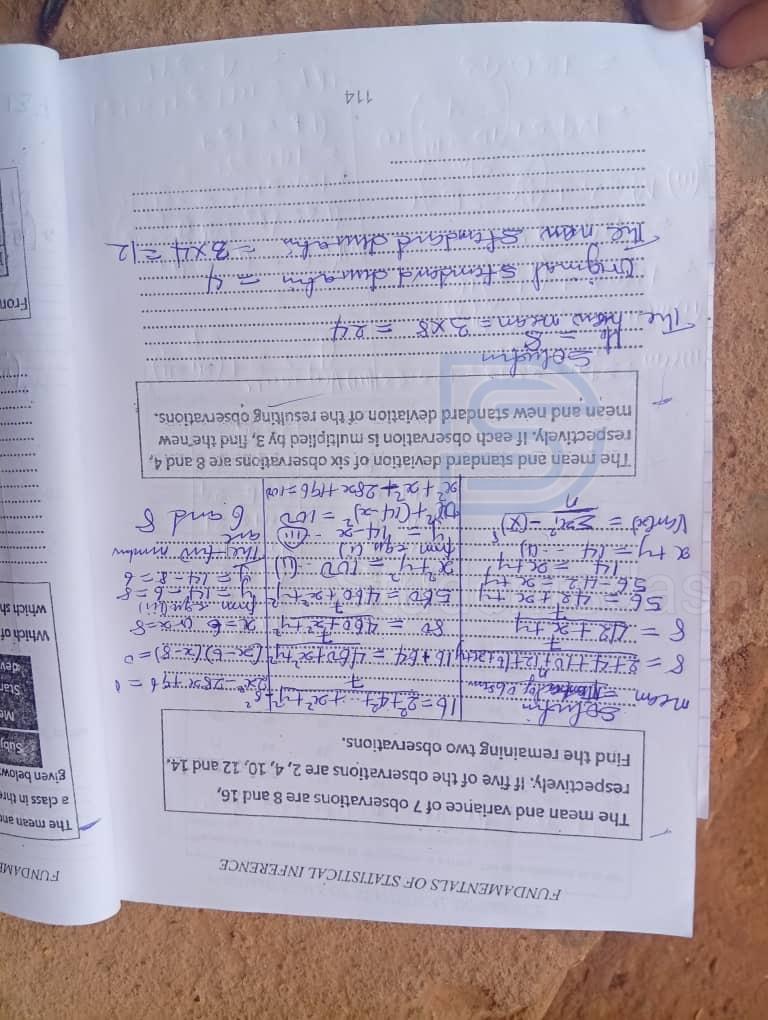 FUNDAMENTALS OF STATISTICAL INFERENCE
The mean and variance of 7 observations are 8 and 16,
respectively. If five of the observations are 2, 4, 10, 12 and 14.
Find the remaining two observations.
Solution
mean =
8 = 2+4+10+12+14+x+y
7
8 = 42+x+y
7
56 = 42+x+y
56-42 = x+y
14 = x+y
x+y = 14 --- (i)
Var(x) = Σx² - (x̄)²
n
16 = 2²+4²+ ... +x²+y² - 8²
7
16+64 = 460+x²+y²
7
80 = 460+x²+y²
7
560 = 460+x²+y²
x²+y² = 100 --(ii)
from eqn (i)
y = 14-x --(iii)
x²+(14-x)² = 100
x²+x²-28x+196=100
2x²-28x+96=0
(x-6)(x-8)=0
x=6 or x=8
from eqn (iii)
y=14-6=8
y=14-8=6
The two number
are
6 and 8
The mean and standard deviation of six observations are 8 and 4,
respectively. If each observation is multiplied by 3, find the new
mean and new standard deviation of the resulting observations.
Solution
= 8
The new mean = 3×8 = 24
Original standard = 4
The new standard = 3×4 = 12
114
FUNDAME
The mean and
a class in thre
given below
Subj
Me
Stan
dev
Which of
which sh
Fron